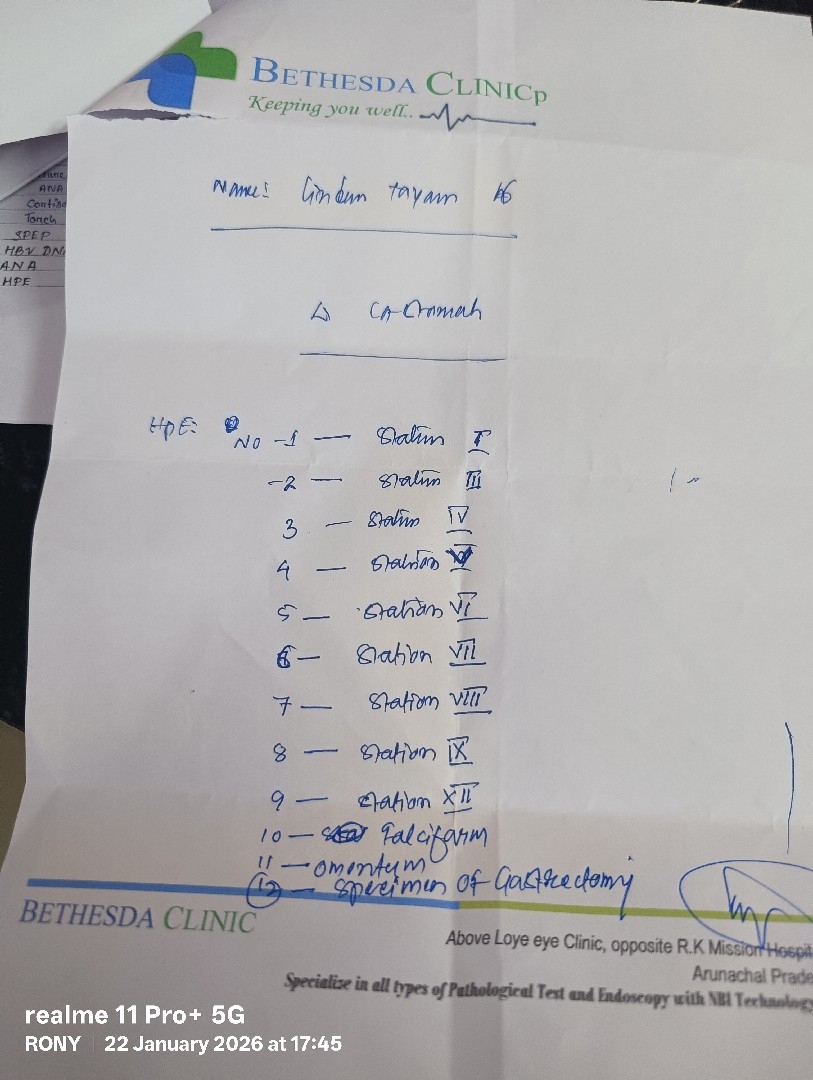 BETHESDA CLINICp
Keeping you well..
ANA
Torch
SPEP
HBV DN
ANA
HPE
Name: tayam
Δ CA-
HPE: NO -1 — Station I
-2 — Station III
3 — Station IV
4 — Station V
5 — Station VI
6 — Station VII
7 — Station VIII
8 — Station IX
9 — Station XII
10 — Falcifarm
11 — omentum
12 — Specimen OF Gastrectomy
BETHESDA CLINIC
Above Loye eye Clinic, opposite R.K Mission Hospit
Arunachal Prade
Specialize in all types of Pathological Test and Endoscopy with NBI Technology
realme 11 Pro+ 5G
RONY | 22 January 2026 at 17:45